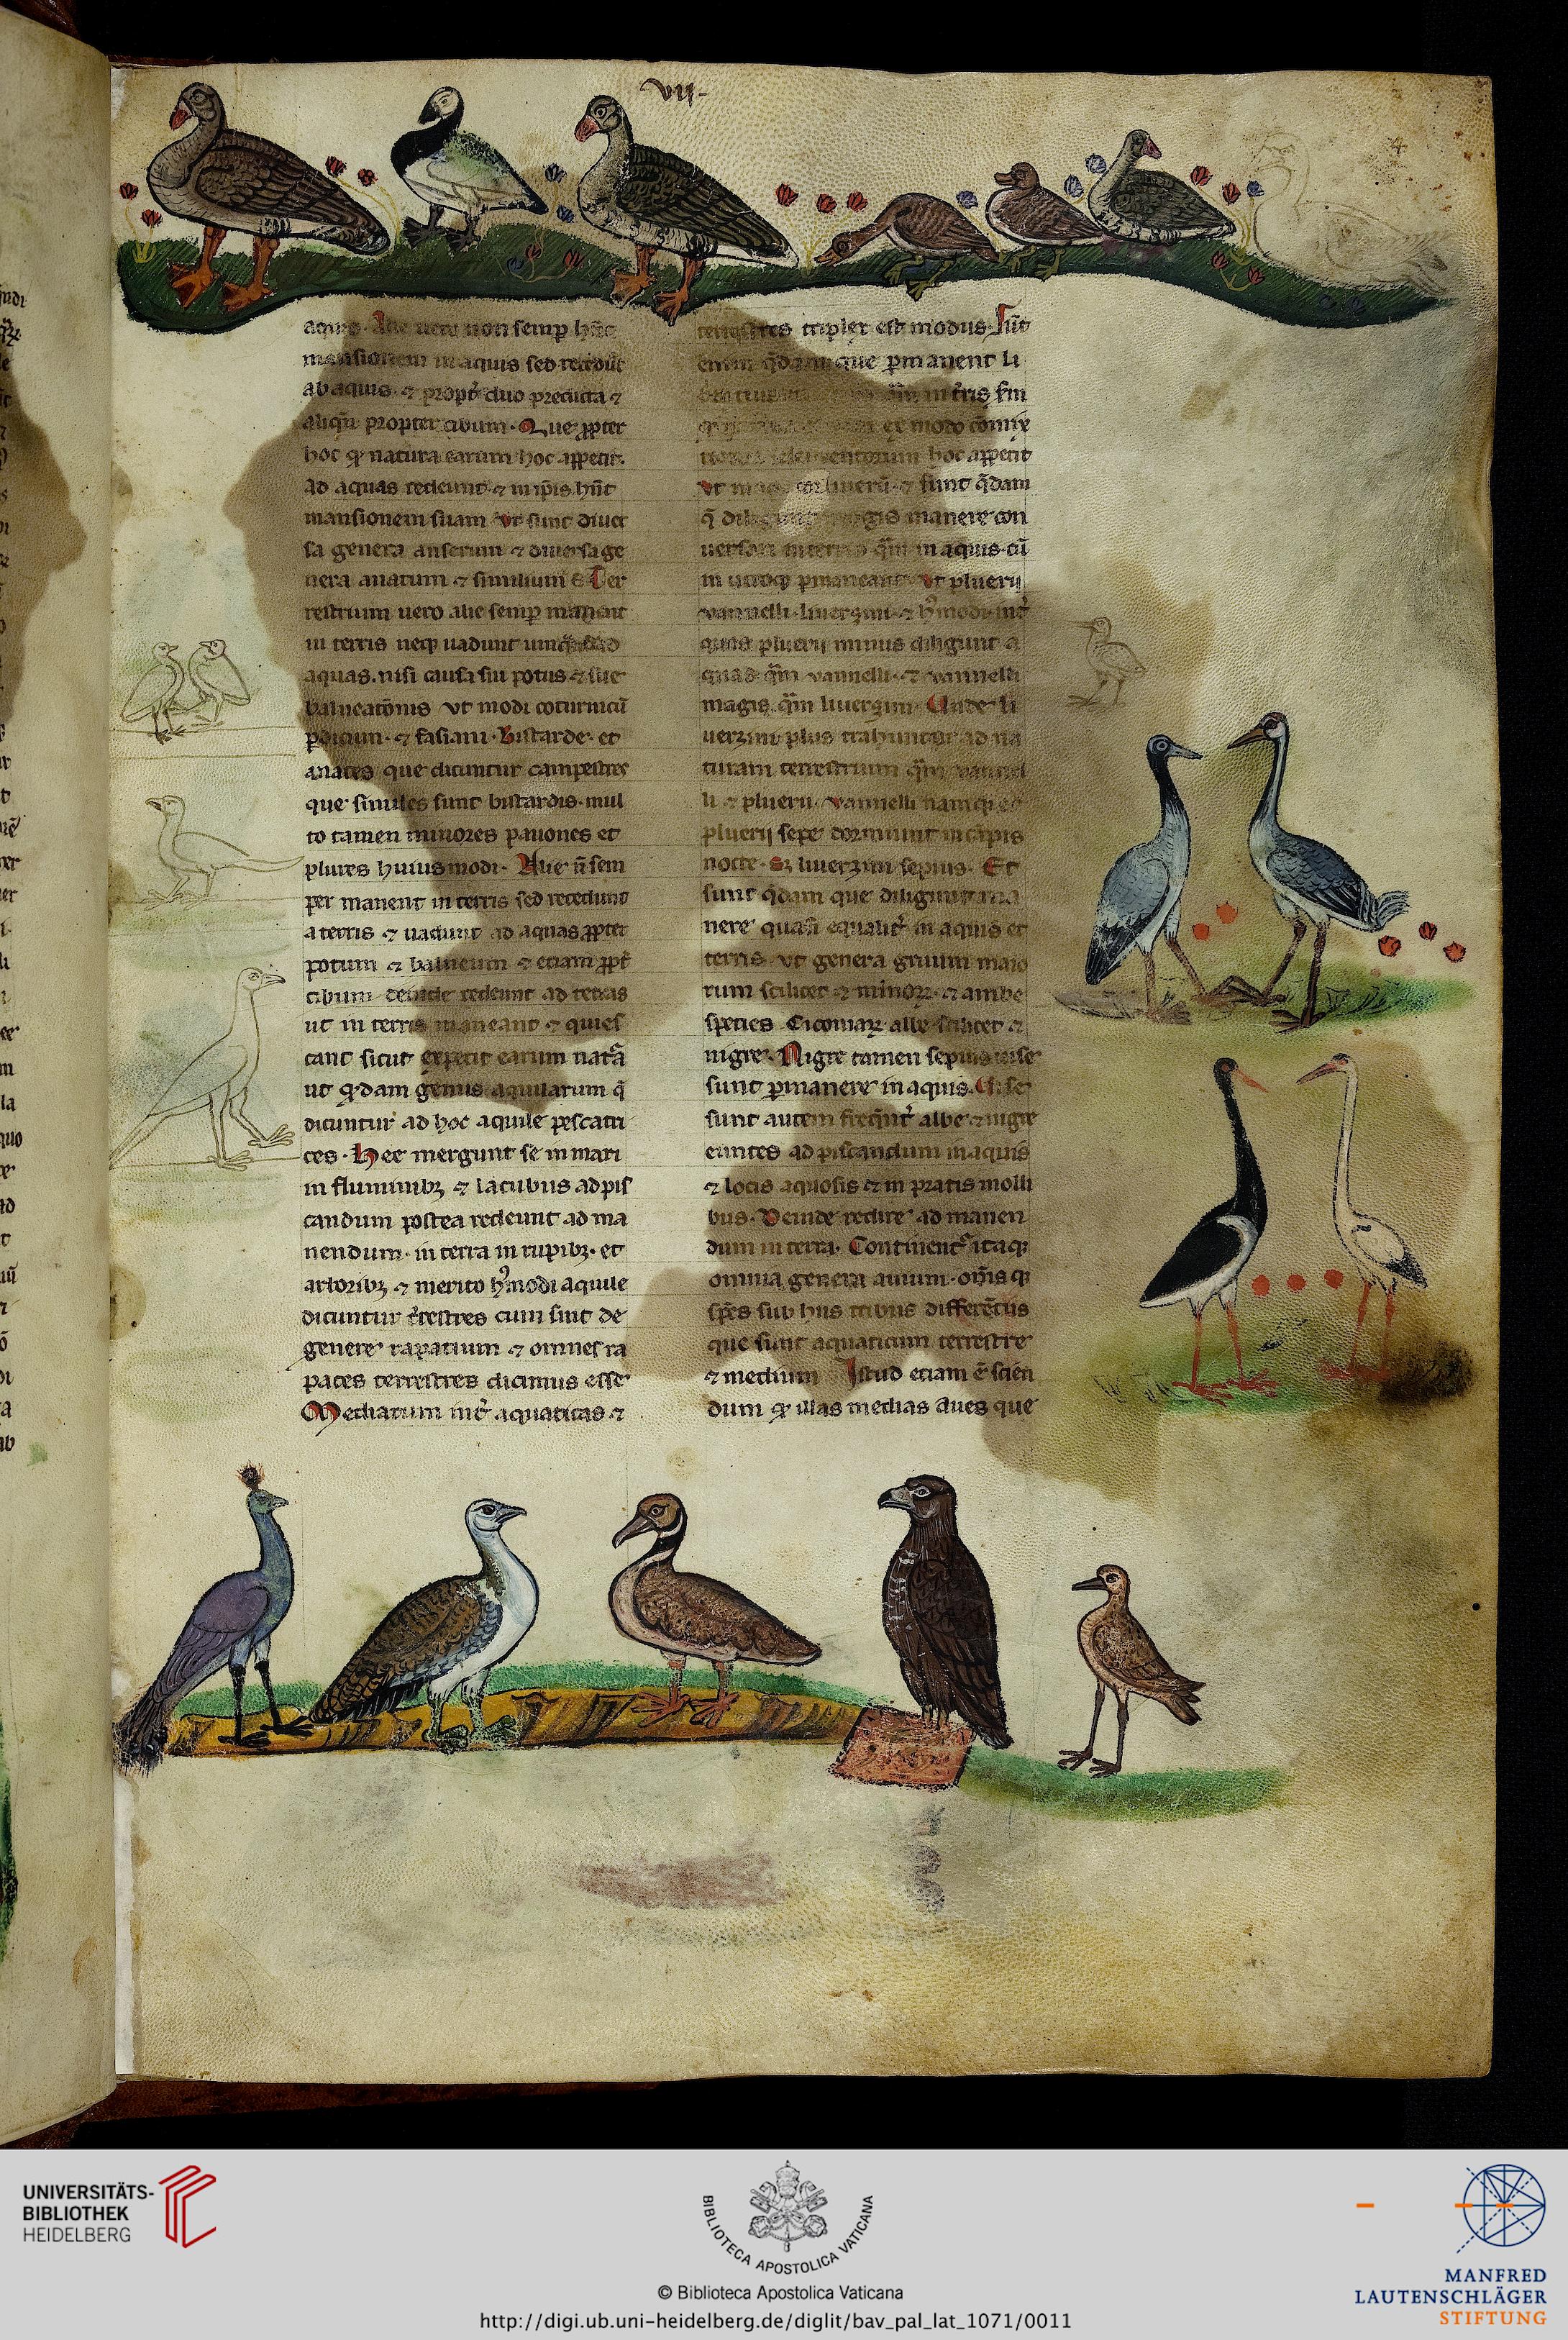 vij.
4
aquis. Alie uero non semp hn̄t
mansionem in aquis sed recedūt
ab aquis ⁊ propt̉ duo predicta ⁊
aliqn̄ propter cibum. Que ꝓpter
hoc ꝙ natura earum hoc appetit.
ad aquas redeunt ⁊ in ip̄is hn̄t
mansionem suam vt sunt diuer
sa genera anserum ⁊ diuersa ge
nera anatum ⁊ similium. Ter
restrium uero alie semp manent
in terris neqꝫ uadunt ad
aquas. nisi causa sui potus ⁊ sue
balneatōnis vt modi coturnicū
ꝑdicum. ⁊ fasiani. Bistarde. et
anates que dicuntur campestres
que similes sunt bistardis. mul
to tamen minores pauones et
plures huiusmodi. Alie ū sem
per manent in terris sed recedunt
a terris ⁊ uadunt ad aquas ꝓpter
potum ⁊ balneum ⁊ etiam ꝓpt̉
cibum deinde redeunt ad terras
ut in terris maneant ⁊ quies
cant sicut expetit earum natā
ut qͦdam genus aquilarum q̄
dicuntur ad hoc aquile pescatri
ces. Hee mergunt se in mari
in fluminibꝫ ⁊ lacubus ad pis
candum postea redeunt ad ma
nendum. in terra in rupibꝫ. et
arboribꝫ ⁊ merito hꝰmodi aquile
dicuntur t̉restres cum sint de
genere rapatium ⁊ omnes ra
paces terrestres dicimus esse
Mediarum int̉ aquaticas ⁊
terrestres triplex est modus. Sūt
enim q̄dam que ꝑmanent li
q̄m in t̉ris sm̄
ex modo cōmix
elementorum hoc appetit
vt ⁊ sunt q̄dam
q̄ diligunt magis manere con
uersari in terris q̄m in aquis. cū
in utroqꝫ ꝑmaneant vt pluerij
vannelli. liuerzini. ⁊ hꝰmodi int̉
quos pluerij minus diligunt a
quas q̄m vannelli. ⁊ vannelli
magis q̄m liuerzini. Unde li
uerzini plus trahuntur ad na
turam terrestrium q̄m vannel
li ⁊ pluerij. vannelli namqꝫ et
pluerij sepe dormiunt in cāpis
nocte. Sꝫ liuerzini sepius. Et
sunt q̄dam que diligunt ma
nere quasi equalit̉ in aquis et
terris. vt genera gruum maio
rum scilicet ⁊ minorꝝ. ⁊ ambe
species Ciconiarꝝ albe scilicet ⁊
nigre. Nigre tamen sepius uise
sunt ꝑmanere in aquis. Uise
sunt autem freq̄nt̉ albe ⁊ nigre
euntes ad piscandum in aquis
⁊ locis aquosis ⁊ in pratis molli
bus. Deinde redire ad manen
dum in terra. Continent̉ itaqꝫ
omnia genera auium. om̄s qꝫ
spēs sub hiis tribus differētiis
que sunt aquaticum terrestre
⁊ medium Istud etiam ē scien
dum ꝙ illas medias aues que
UNIVERSITÄTS-
BIBLIOTHEK
HEIDELBERG
BIBLIOTECA APOSTOLICA VATICANA
© Biblioteca Apostolica Vaticana
http://digi.ub.uni-heidelberg.de/diglit/bav_pal_lat_1071/0011
MANFRED
LAUTENSCHLÄGER
STIFTUNG